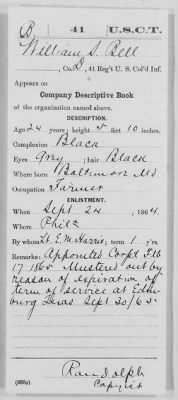 B. 41 U.S.C.T.
William S. Bell
, Co. D, 41 Reg't U. S. Col'd Inf.
Appears on
Company Descriptive Book
of the organization named above.
DESCRIPTION.
Age 24 years; height 5 feet 10 inches.
Complexion Black
Eyes Grey; hair Black
Where born Baltimore Md
Occupation Farmer
ENLISTMENT.
When Sept 24, 1864.
Where Phila
By whom Lt. E. M. Harris; term 1 y'rs.
Remarks: Appointed Corpl Feb
17 1865 Mustered out by
reason of expiration of
term of service at Edin-
burg Texas Sept 30/65
Randolph
Copyist